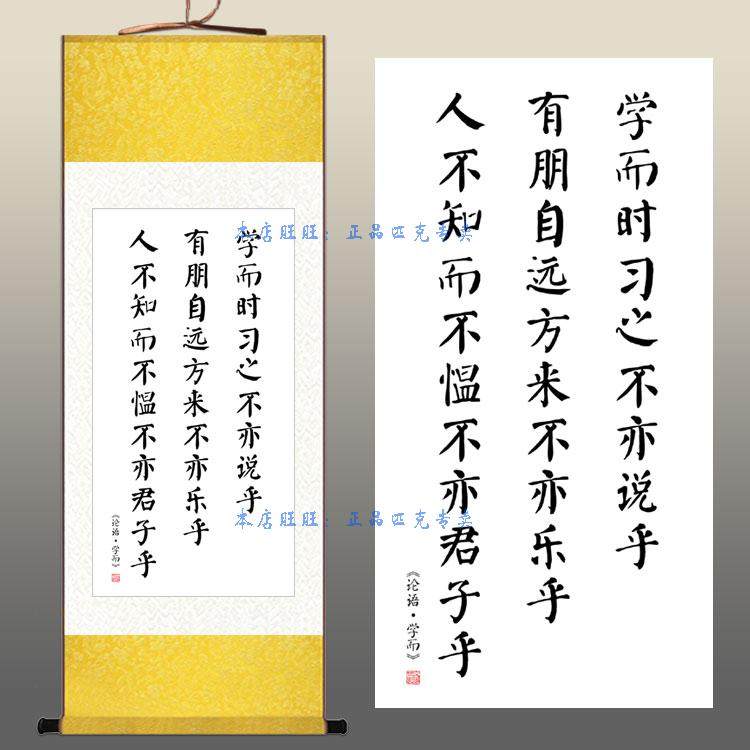 学而时习之不亦说乎
有朋自远方来不亦乐乎
人不知而不愠不亦君子乎
《论语·学而》
学而时习之不亦说乎
有朋自远方来不亦乐乎
人不知而不愠不亦君子乎
《论语·学而》
本店旺旺：正品匹克专卖
本店旺旺：正品匹克专卖